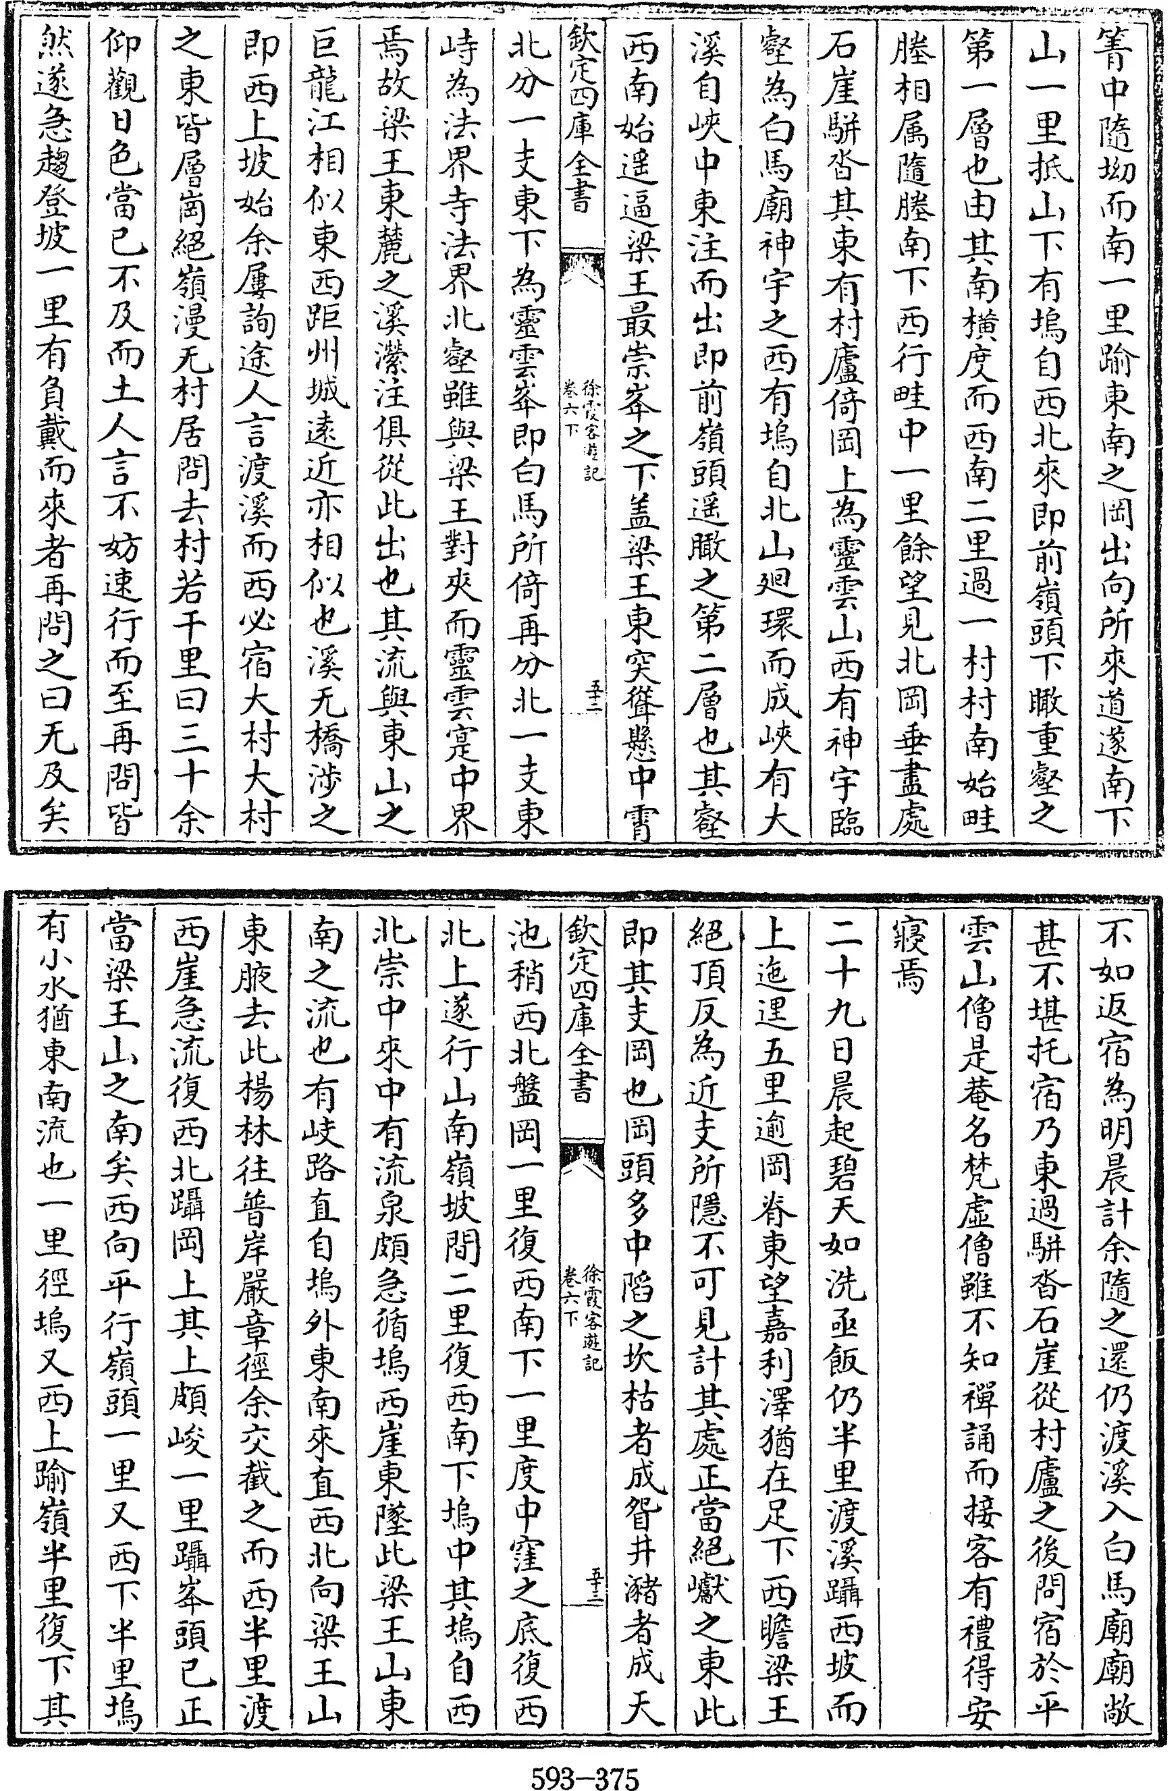 箐中隨坳而南一里踰東南之岡出向所來道遂南下
山一里抵山下有塢自西北來即前嶺頭下瞰重壑之
第一層也由其南横度而西南二里過一村村南始畦
塍相属隨塍南下西行畦中一里餘望見北岡垂盡處
石崖駢沓其東有村廬倚岡上為靈雲山西有神宇臨
壑為白馬廟神宇之西有塢自北山廻環而成峽有大
溪自峽中東注而出即前嶺頭遥瞰之第二層也其壑
西南始遥逼梁王最崇峯之下盖梁王東突聳懸中霄
欽定四庫全書
徐霞客遊記
卷六下
五十二
北分一支東下為靈雲峯即白馬所倚再分北一支東
峙為法界寺法界北壑雖與梁王對夾而靈雲寔中界
焉故梁王東麓之溪瀠注俱從此出也其流與東山之
巨龍江相似東西距州城遠近亦相似也溪无橋涉之
即西上坡始余屢詢途人言渡溪而西必宿大村大村
之東皆層崗絕嶺漫无村居問去村若干里曰三十余
仰觀日色當已不及而土人言不妨速行而至再問皆
然遂急趨登坡一里有負戴而來者再問之曰无及矣
不如返宿為明晨計余隨之還仍渡溪入白馬廟廟敞
甚不堪托宿乃東過駢沓石崖從村廬之後問宿於平
雲山僧是菴名梵虛僧雖不知禪誦而接客有禮得安
寢焉
二十九日晨起碧天如洗亟飯仍半里渡溪躡西坡而
上迤逞五里逾岡脊東望嘉利澤猶在足下西瞻梁王
絕頂反為近支所隱不可見計其處正當絕巘之東此
即其支岡也岡頭多中䧟之坎枯者成眢井瀦者成天
欽定四庫全書
徐霞客遊記
卷六下
五十三
池稍西北盤岡一里復西南下一里度中窪之底復西
北上遂行山南嶺坡間二里復西南下塢中其塢自西
北崇中來中有流泉頗急循塢西崖東墜此梁王山東
南之流也有岐路直自塢外東南來直西北向梁王山
東腋去此楊林往普岸嚴章徑余交截之而西半里渡
西崖急流復西北躡岡上其上頗峻一里躡峯頭已正
當梁王山之南矣西向平行嶺頭一里又西下半里塢
有小水猶東南流也一里徑塢又西上踰嶺半里復下其
593-375